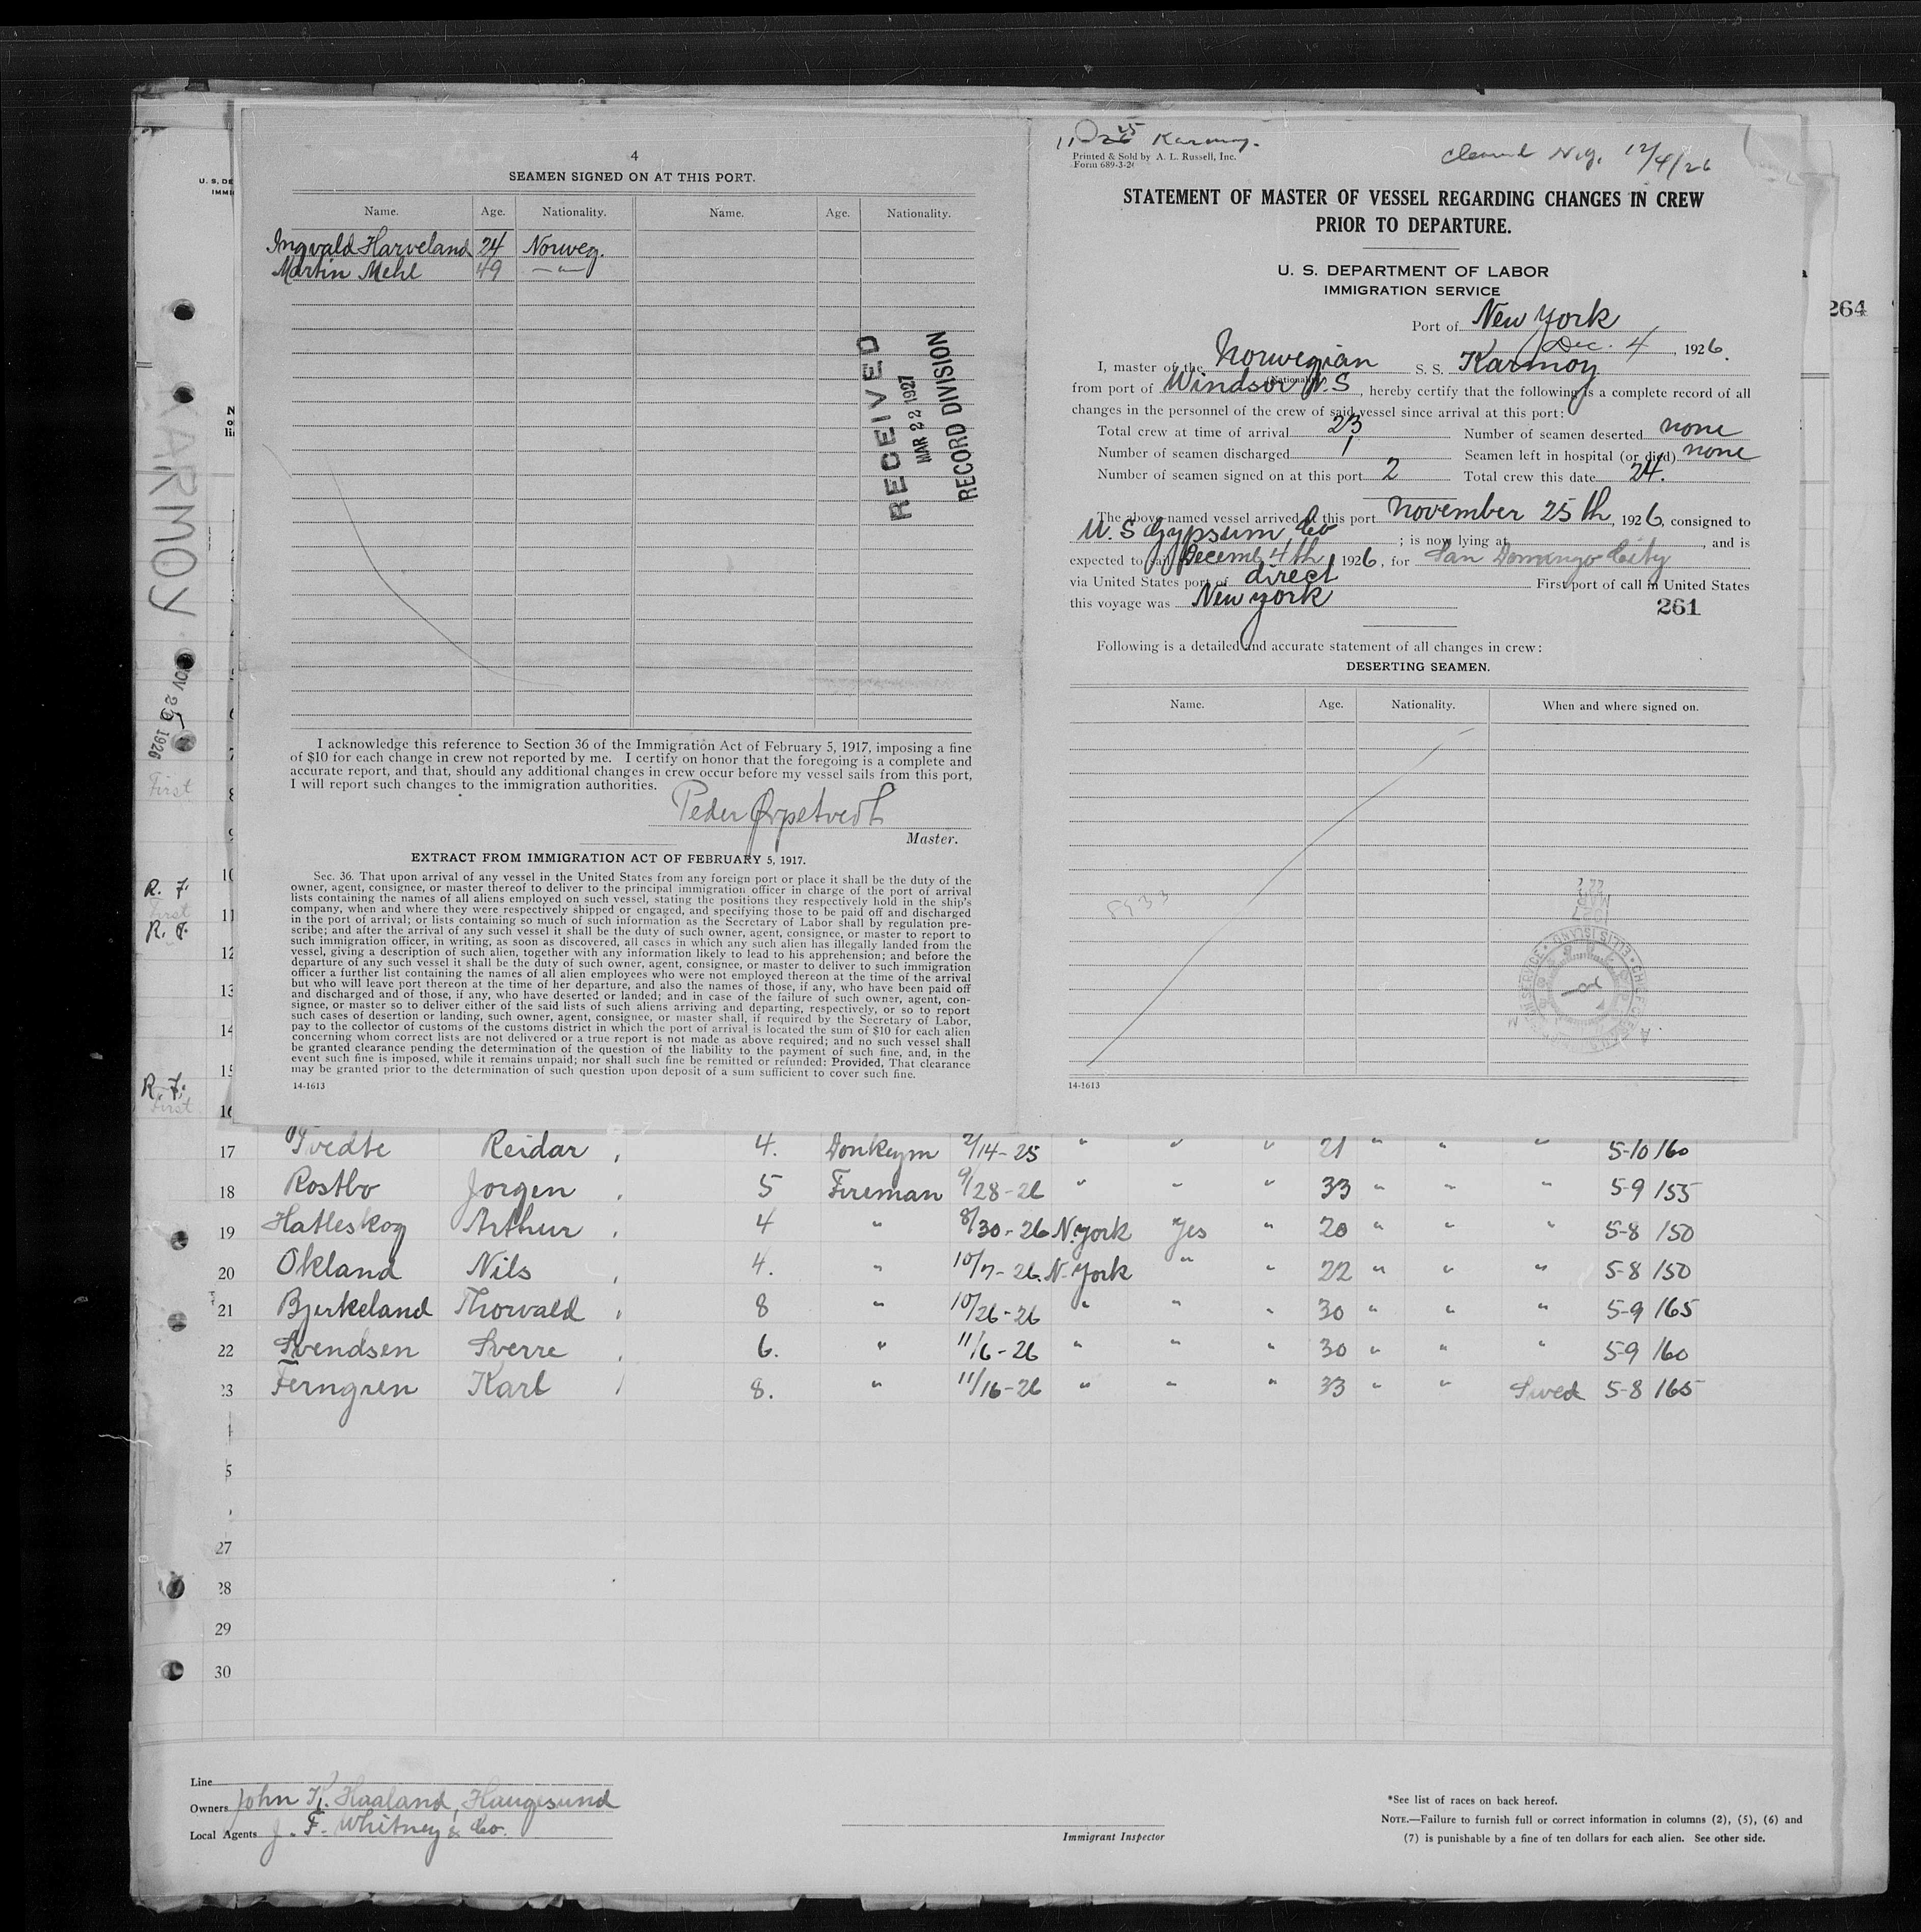 4
SEAMEN SIGNED ON AT THIS PORT.
Name. Age. Nationality. Name. Age. Nationality.
Ingvald Harveland 24 Norweg.
Martin Mehl 49 —"—
RECEIVED
MAR 22 1927
RECORD DIVISION
I acknowledge this reference to Section 36 of the Immigration Act of February 5, 1917, imposing a fine
of $10 for each change in crew not reported by me. I certify on honor that the foregoing is a complete and
accurate report, and that, should any additional changes in crew occur before my vessel sails from this port,
I will report such changes to the immigration authorities.
Peder Ørpetvedt
Master.
EXTRACT FROM IMMIGRATION ACT OF FEBRUARY 5, 1917.
Sec. 36. That upon arrival of any vessel in the United States from any foreign port or place it shall be the duty of the
owner, agent, consignee, or master thereof to deliver to the principal immigration officer in charge of the port of arrival
lists containing the names of all aliens employed on such vessel, stating the positions they respectively hold in the ship's
company, when and where they were respectively shipped or engaged, and specifying those to be paid off and discharged
in the port of arrival; or lists containing so much of such information as the Secretary of Labor shall by regulation pre-
scribe; and after the arrival of any such vessel it shall be the duty of such owner, agent, consignee, or master to report to
such immigration officer, in writing, as soon as discovered, all cases in which any such alien has illegally landed from the
vessel, giving a description of such alien, together with any information likely to lead to his apprehension; and before the
departure of any such vessel it shall be the duty of such owner, agent, consignee, or master to deliver to such immigration
officer a further list containing the names of all alien employees who were not employed thereon at the time of the arrival
but who will leave port thereon at the time of her departure, and also the names of those, if any, who have been paid off
and discharged and of those, if any, who have deserted or landed; and in case of the failure of such owner, agent, con-
signee, or master so to deliver either of the said lists of such aliens arriving and departing, respectively, or so to report
such cases of desertion or landing, such owner, agent, consignee, or master shall, if required by the Secretary of Labor,
pay to the collector of customs of the customs district in which the port of arrival is located the sum of $10 for each alien
concerning whom correct lists are not delivered or a true report is not made as above required; and no such vessel shall
be granted clearance pending the determination of the question of the liability to the payment of such fine, and, in the
event such fine is imposed, while it remains unpaid; nor shall such fine be remitted or refunded: Provided, That clearance
may be granted prior to the determination of such question upon deposit of a sum sufficient to cover such fine.
14-1613
Karmoy.
Printed & Sold by A. L. Russell, Inc.
Form 689-3-2
Cleared N.Y. 12/4/26
STATEMENT OF MASTER OF VESSEL REGARDING CHANGES IN CREW
PRIOR TO DEPARTURE.
U. S. DEPARTMENT OF LABOR
IMMIGRATION SERVICE
Port of New York
Dec. 4, 1926.
I, master of the Norwegian S. S. Karmoy
(Nationality)
from port of Windsor N.S, hereby certify that the following is a complete record of all
changes in the personnel of the crew of said vessel since arrival at this port:
Total crew at time of arrival 23 Number of seamen deserted none
Number of seamen discharged 1 Seamen left in hospital (or died) none
Number of seamen signed on at this port 2 Total crew this date 24.
The above-named vessel arrived at this port November 25th, 1926, consigned to
U. S Gypsum Co; is now lying at, and is
expected to sail Decemb 4th, 1926, for San Domingo City
via United States port of direct First port of call in United States
this voyage was New York
261
Following is a detailed and accurate statement of all changes in crew:
DESERTING SEAMEN.
Name. Age. Nationality. When and where signed on.
14-1613
264
KARMOY
NOV 25 1926
First
R. F.
First
R. F.
R. F.
First
7
8
9
10
11
12
13
14
15
16
17 Tvedte Reidar 4. Donkeym 2/14-25 " " " 21 " " " 5-10 160
18 Rostbo Jorgen 5 Fireman 9/28-26 " " " 33 " " " 5-9 155
19 Hatleskog Arthur 4 " 8/30-26 N.York Yes " 20 " " " 5-8 150
20 Okland Nils 4. " 10/7-26. N-York " " 22 " " " 5-8 150
21 Bjerkeland Thorvald 8 " 10/26-26 " " " 30 " " " 5-9 165
22 Svendsen Sverre 6. " 11/6-26 " " " 30 " " " 5-9 160
23 Ferngren Karl 8. " 11/16-26 " " " 33 " " Swed 5-8 165
27
28
29
30
Line
Owners John K. Haaland, Haugesund
Local Agents J. F. Whitney & Co.
Immigrant Inspector
*See list of races on back hereof.
NOTE.—Failure to furnish full or correct information in columns (2), (5), (6) and
(7) is punishable by a fine of ten dollars for each alien. See other side.